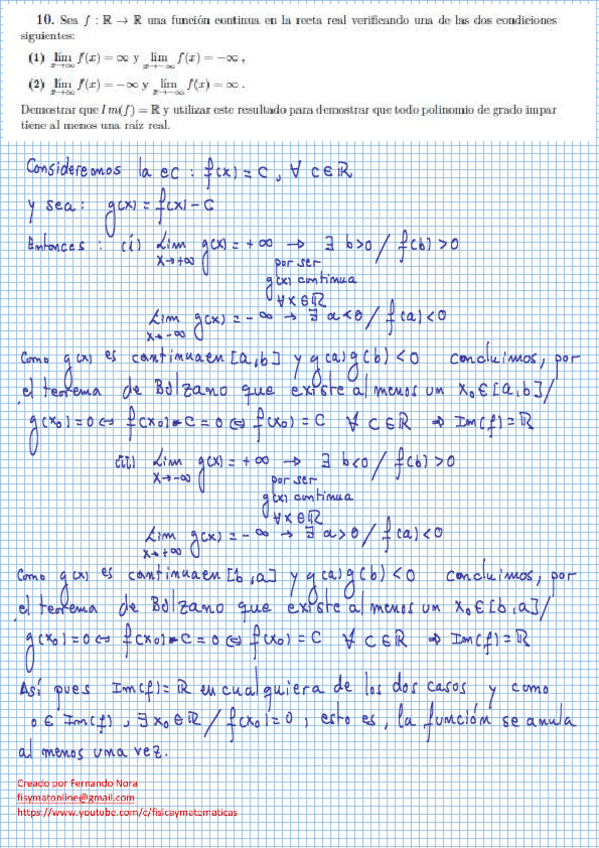 10. Sea f : ℝ → ℝ una función continua en la recta real verificando una de las dos condiciones
siguientes:
(1) lim f(x) = ∞ y lim f(x) = −∞ ,
x→∞ x→−∞
(2) lim f(x) = −∞ y lim f(x) = ∞ .
x→∞ x→−∞
Demostrar que Im(f) = ℝ y utilizar este resultado para demostrar que todo polinomio de grado impar
tiene al menos una raíz real.
Consideremos la ec : f(x) = c, ∀ c∈ℝ
y sea: g(x) = f(x) - c
Entonces : (i) Lim g(x) = +∞ → ∃ b>0 / f(b)>0
x→+∞ por ser
g(x) continua
∀x∈ℝ
Lim g(x) = -∞ → ∃ a<0 / f(a)<0
x→-∞
Como g(x) es continua en [a,b] y g(a)g(b)<0 concluimos, por
el teorema de Bolzano que existe al menos un x₀∈[a,b]/
g(x₀)=0 ⇔ f(x₀)-c=0 ⇔ f(x₀)=c ∀ c∈ℝ ⇒ Im(f)=ℝ
(ii) Lim g(x) = +∞ → ∃ b<0 / f(b)>0
x→-∞ por ser
g(x) continua
∀x∈ℝ
Lim g(x) = -∞ → ∃ a>0 / f(a)<0
x→+∞
Como g(x) es continua en [b,a] y g(a)g(b)<0 concluimos, por
el teorema de Bolzano que existe al menos un x₀∈[b,a]/
g(x₀)=0 ⇔ f(x₀)-c=0 ⇔ f(x₀)=c ∀ c∈ℝ ⇒ Im(f)=ℝ
Así pues Im(f)=ℝ en cualquiera de los dos casos y como
0∈Im(f), ∃ x₀∈ℝ / f(x₀)=0; esto es, la función se anula
al menos una vez.
Creado por Fernando Nora
fisymatonline@gmail.com
https://www.youtube.com/c/fisicaymatematicas